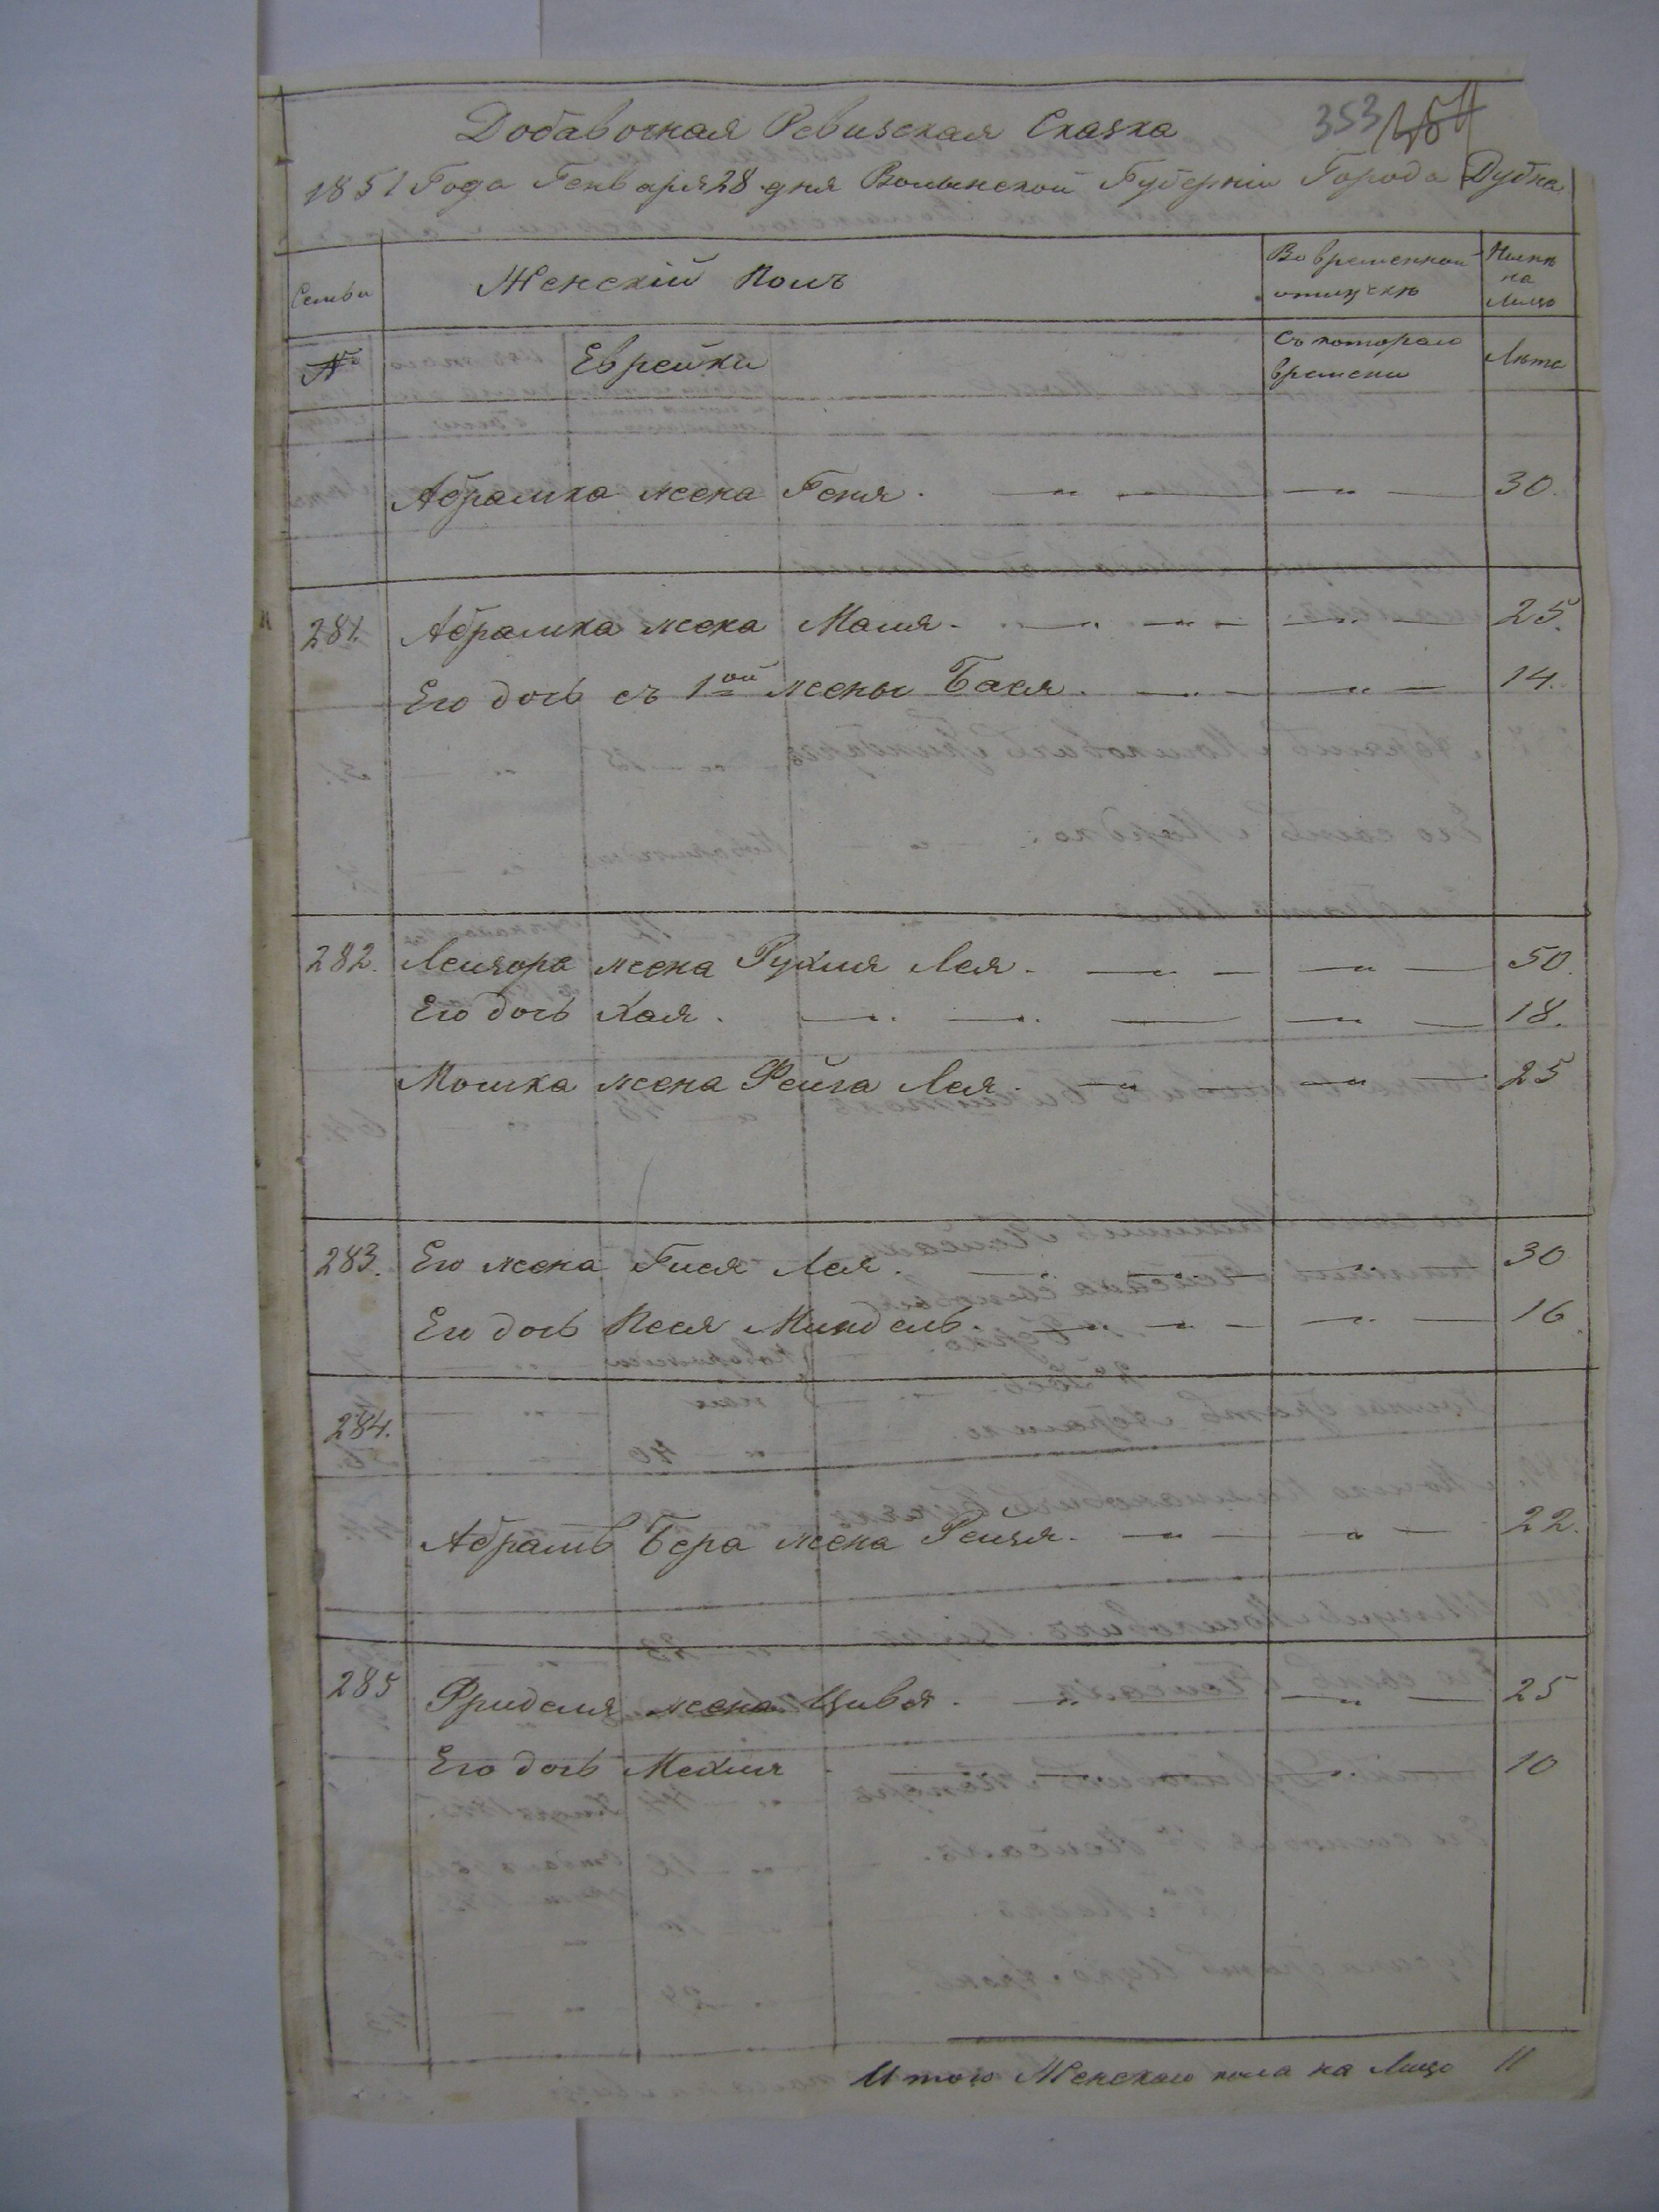 Добавочная Ревизская Сказка 353
1851 Года Генваря 28 дня Волынской Губерніи Города Дубна
Семьи Женскій Полъ Во временной отлучкѣ Нынѣ на Лицо
№ Еврейки Съ котораго времени Лѣта
Абрамка жена Геня. 30.
281. Абрамка жена Маля. 25.
Его дочь съ 1ой жены Бася. 14.
282. Лейзора жена Рухля Лея. 50.
Его дочь Хая. 18.
Мошка жена Фейга Лея. 25
283. Его жена Гися Лея. 30
Его дочь Песя Миндель. 16
284.
Абрамъ Бера жена Рейзя. 22.
285 Фриделя жена Цивя. 25
Его дочь Мехля 10
Итого Женскаго пола на Лицо 11